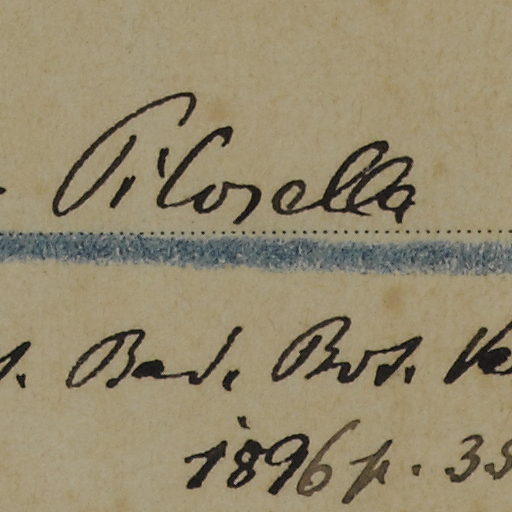 Pilosella
Bad. Bot. Ve
1896 p. 33